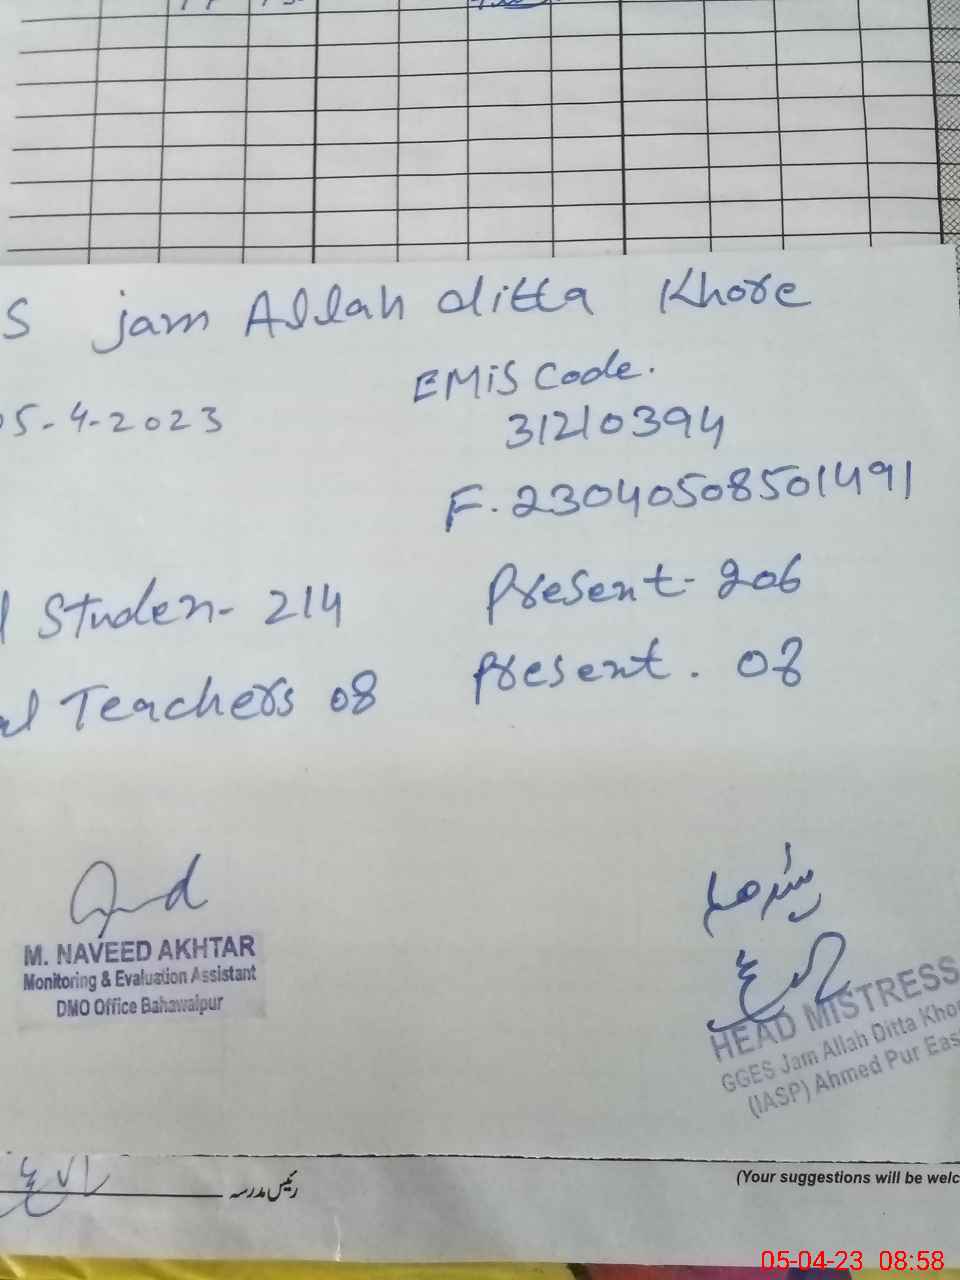 S jam Allah ditta Khore
EMiS Code.
05-4-2023
31210394
F. 23040508501491
l Studen- 214 Present- 206
al Teachers 08 Present. 08
M. NAVEED AKHTAR
Monitoring & Evaluation Assistant
DMO Office Bahawalpur
HEAD MISTRESS
GGES Jam Allah Ditta Khor
(IASP) Ahmed Pur Eas
رئیس مدرسہ
(Your suggestions will be welc
05-04-23 08:58